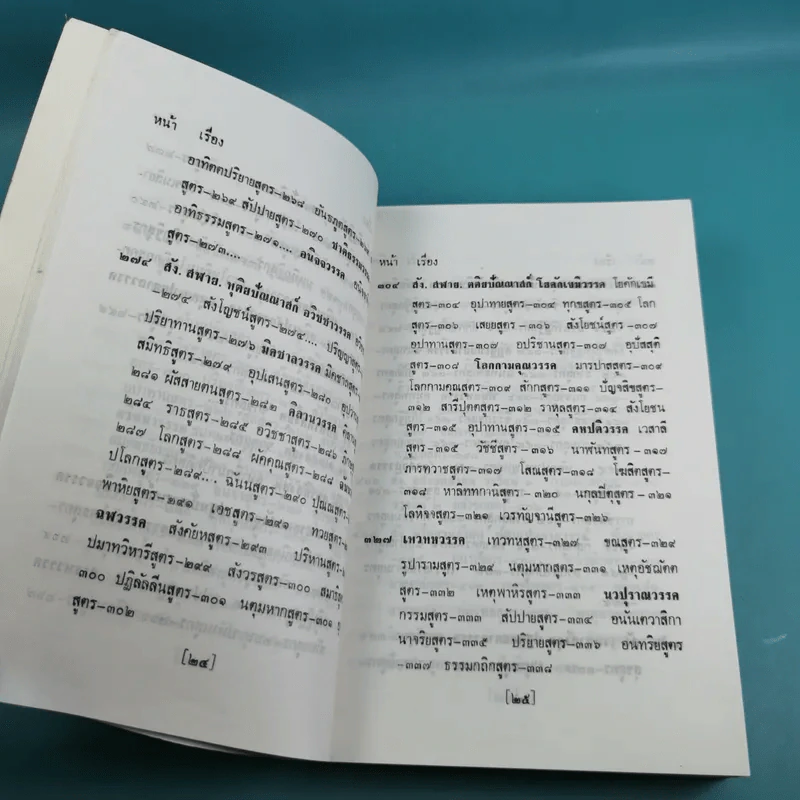 หน้า เรื่อง
อาทิตตปริยายสูตร-๒๖๘ ยันธภูตสูตร-๒๖๙
สูตร-๒๖๙ สัปปายสูตร-๒๗๐ ชาติธรรมวรรค
อาทิธรรมสูตร-๒๗๑.... อนิจจวรรค
สูตร-๒๗๓....
๒๗๔ สัง. สฬาย. ทุติยปัณณาสก์ อวิชชาวรรค
-๒๗๔ สังโญชน์สูตร-๒๗๔.... ปริญญาสูตร
ปริยาทานสูตร-๒๗๖ มิคชาลวรรค มิคชาลสูตร
สมิทธิสูตร-๒๗๙ อุปเสนสูตร-๒๘๐
๒๘๑ ผัสสายตนสูตร-๒๘๒ คิลานวรรค
๒๘๔ ราธสูตร-๒๘๕ อวิชชาสูตร-๒๘๖
๒๘๗ โลกสูตร-๒๘๘ ผัคคุณสูตร-๒๘๘
ปโลกสูตร-๒๘๙... ฉันนสูตร-๒๙๐ ปุณณสูตร
พาหิยสูตร-๒๙๑ เอชสูตร-๒๙๑ ทวยสูตร-
ฉฬวรรค สังคัยหสูตร-๒๙๓ ปริหานสูตร-
ปมาทวิหารีสูตร-๒๙๙ สังวรสูตร-๓๐๐
๓๐๐ ปฏิลัลลีนสูตร-๓๐๑ นตุมหากสูตร-๓๐๑
สูตร-๓๐๒
[๒๔]
หน้า เรื่อง
๓๐๔ สัง. สฬาย. ตติยปัณณาสก์ โยคักเขมิวรรค โยคักเขมี
สูตร-๓๐๔ อุปาทายสูตร-๓๐๔ ทุกขสูตร-๓๐๕ โลก
สูตร-๓๐๖ เสยยสูตร-๓๐๖ สังโยชน์สูตร-๓๐๗
อุปาทานสูตร-๓๐๗ อปริชานสูตร-๓๐๗ อุปัสสุติ
สูตร-๓๐๘ โลกกามคุณวรรค มารปาสสูตร-๓๐๙
โลกกามคุณสูตร-๓๐๙ สักกสูตร-๓๑๑ ปัญจสิขสูตร-
๓๑๒ สารีปุตตสูตร-๓๑๒ ราหุลสูตร-๓๑๔ สังโยชน
สูตร-๓๑๕ อุปาทานสูตร-๓๑๕ คหปติวรรค เวสาลี
สูตร-๓๑๕ วัชชีสูตร-๓๑๖ นาฬันทสูตร-๓๑๗
ภารทวาชสูตร-๓๑๗ โสณสูตร-๓๑๘ โฆสิตสูตร-
๓๑๘ หาลิททกานิสูตร-๓๒๐ นกุลบีตุสูตร-๓๒๑
โลหิจจสูตร-๓๒๑ เวรหัญจานีสูตร-๓๒๖
๓๒๗ เทวทหวรรค เทวทหสูตร-๓๒๗ ขณสูตร-๓๒๙
รูปารามสูตร-๓๒๙ นตุมหากสูตร-๓๓๑ เหตุอัชฌัตต
สูตร-๓๓๒ เหตุพาหิรสูตร-๓๓๓ นวปุราณวรรค
กรรมสูตร-๓๓๓ สัปปายสูตร-๓๓๔ อนันเตวาสิกา
นาจริยสูตร-๓๓๕ ปริยายสูตร-๓๓๖ อินทริยสูตร
-๓๓๗ ธรรมกถิกสูตร-๓๓๘
[๒๕]